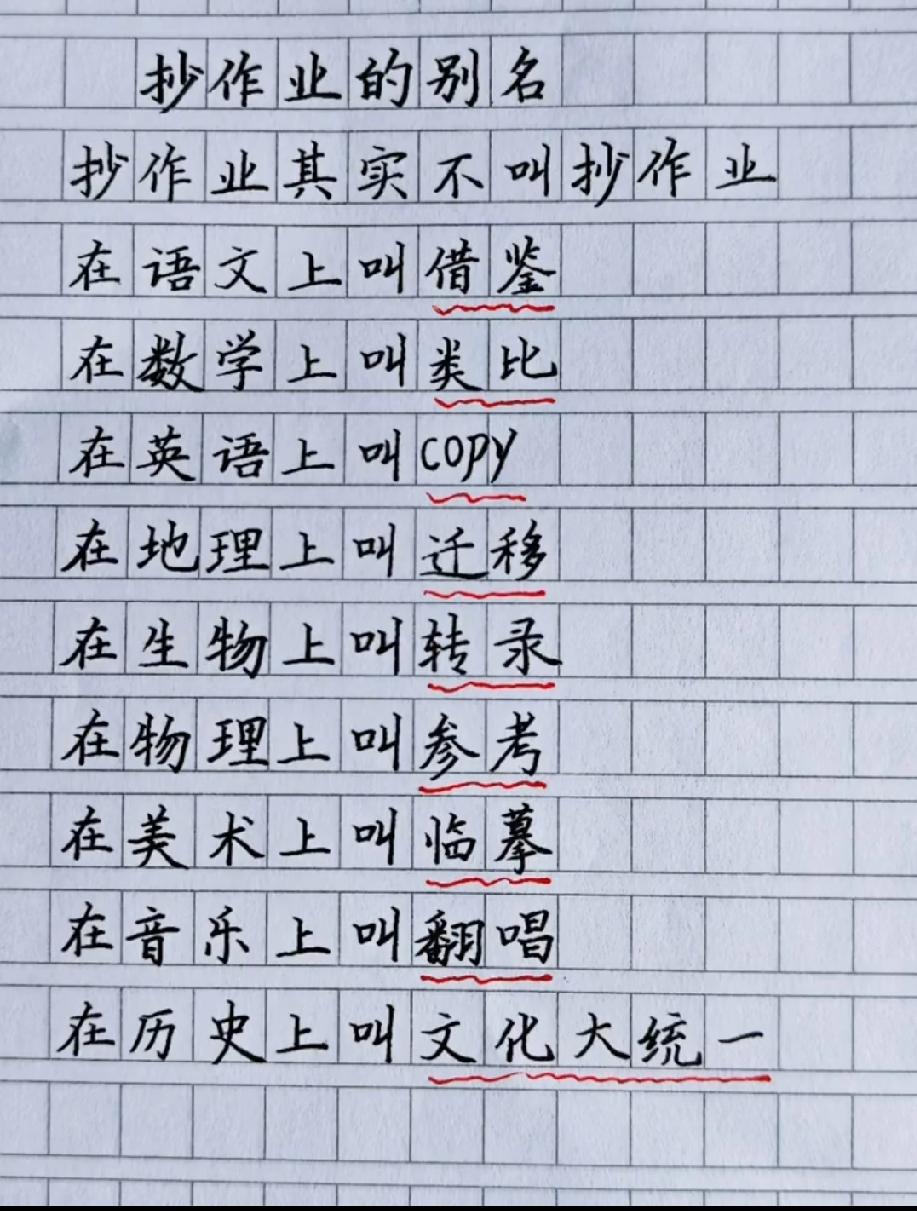 抄作业的别名
抄作业其实不叫抄作业
在语文上叫借鉴
在数学上叫类比
在英语上叫copy
在地理上叫迁移
在生物上叫转录
在物理上叫参考
在美术上叫临摹
在音乐上叫翻唱
在历史上叫文化大统一